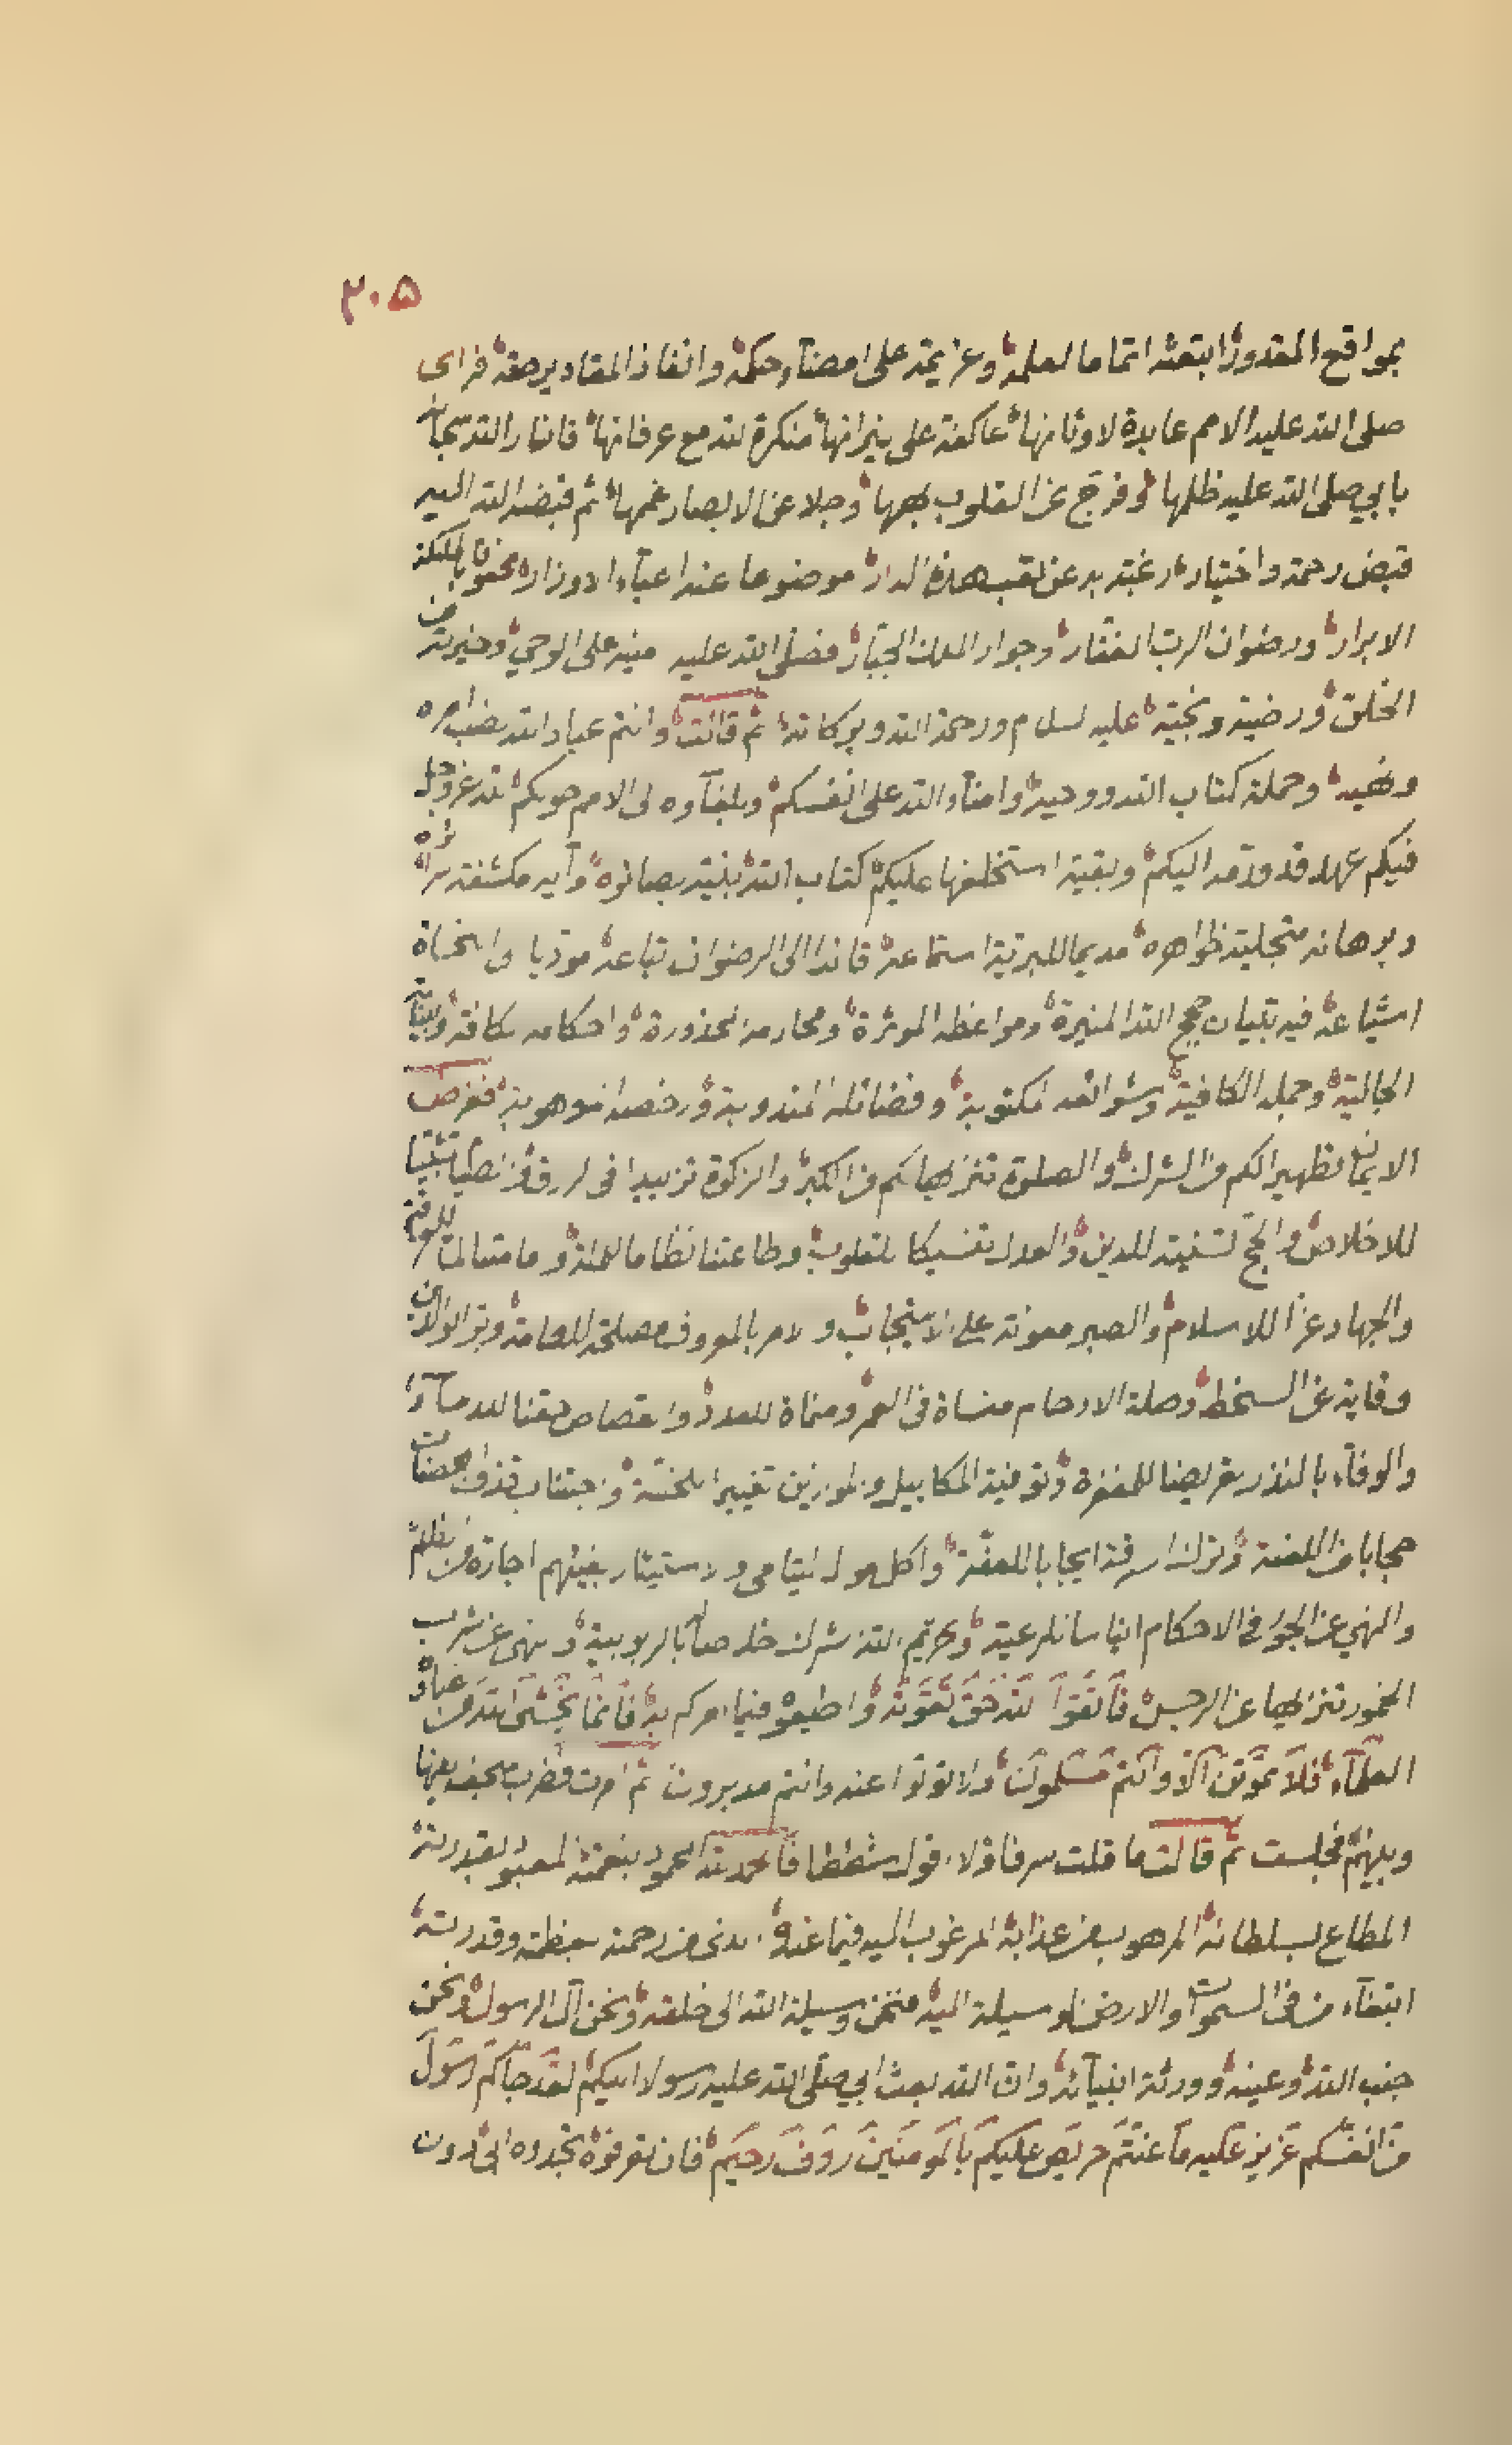 ٣٠٥
بمواقع المقدور ابتعثه اتماما لعلمه وعزيمة على امضآء حكمه وانفاذ المقادير حقه فراى
صلى الله عليه الامم عابدة لاوثانها عاكفة على نيرانها منكرة لله مع عرفانها فانار الله سبحانه
بابي صلى الله عليه ظلمها وفرج عن القلوب بهمها وجلا عن الابصار غممها ثم قبضه الله اليه
قبض رحمة واختيار رغبة به عن تعب هذه الدار موضوعا عنه اعبآء الاوزار محفوفا بالملئكة
الابرار ورضوان الرب الغفار وجوار الملك الجبار فصلى الله عليه منبه على الوحي وخيرته من
الخلق ورضيه ونجيه عليه لسلام ورحمة الله وبركاته ثم قالت وانتم عباد الله نصب امره
ونهيه وحملة كتاب الله ووحيه وامنآء الله على انفسكم وبلغآوه لى الامم حولكم لله عز وجل
فيكم عهد قد قدمه اليكم وبقية استخلفها عليكم كتاب الله بينة بصائره وآيه مكشفة سرائره
وبرهانه متجلية ظواهره مديما للبرية استماعه قائدا الى الرضوان تباعه موديا الى النجاة
اشياعه فيه تبيان حجج الله المنيرة ومواعظه الموثرة ومحارمه المحذورة واحكامه لكافة وبيناته
الجالية وجمله الكافية وشرائعه المكتوبة وفضائله المندوبة ورخصه الموهوبة ففرض
الايمان تطهيرا لكم من الشرك والصلوة تنزيها لكم من الكبر والزكوة تزييدا فى لرزق والصيام تثبيتا
للاخلاص والحج تسنية للدين والعدل تنسيكا للقلوب وطاعتنا نظاما للملة وامامتنا لما للفرقة
والجهاد عزا للاسلام والصبر معونة على الاستيجاب والامر بالمعروف مصلحة للعامة وبر الوالدين
وقاية عن السخط وصلة الارحام منساة فى العمر ومنماة للعدد والقصاص حقنا للدمآء
والوفآء بالنذر تعريضا للمغفرة وتوفية المكاييل والموازين تغييرا للبخسة واجتناب قذف المحصنات
حجابا من اللعنة وترك السرقة ايجابا للعفة واكل اموال ليتامى والاستيثار بفيئهم اجارة من الظلم
والنهي عن الجور فى الاحكام ايناسا للرعية وتحريم الله الشرك خلاصا بالربوبية ونهى عن شرب
الخمور تنزيها عن الرجس فاتقوا الله حق تقوته واطيعوه فيما امركم به فانما يخشى الله من عباده
العلمآء فلا تموتن الا وانتم مسلمون ولا تولوا عنه وانتم مدبرون ثم امرت فضرب سجف بينها
وبينهم فجلست ثم قالت ما قلت سرفا ولا اقول شططا فالحمد لله المحمود بنعمته المعبود بقدرته
المطاع لسلطانه المرهوب من عذابه المرغوب اليه فيما عنده ادنى من رحمته بعظمته وقدرته
ابتغآء من فى السموات والارض الوسيلة اليه فنحن وسيلة الله الى خلقه ونحن آل الرسول ونحن
جنب الله وعينه وورثة انبيائه وان الله بعث ابي صلى الله عليه رسولا اليكم لقد جآكم رسول
من انفسكم عزيز عليه ما عنتم حريص عليكم بالمومنين روف رحيم فان تعرفوه تجدوه ابى دون